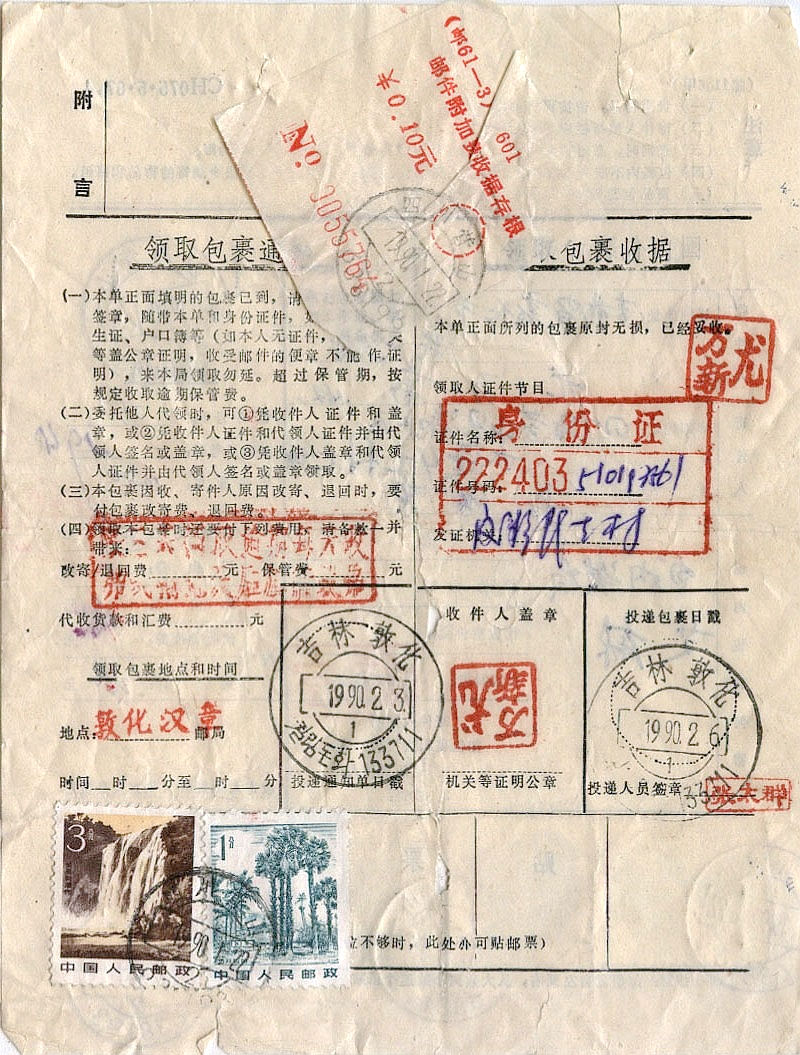 附
言
(邮61—3) 601
邮件附加费收据存根
0.10元
No
领取包裹通
包裹收据
(一)本单正面填明的包裹已到，请
签章，随带本单和身份证件，
生证、户口簿等（如本人无证件，
等盖公章证明，收受邮件的便章不能作证
明），来本局领取勿延。超过保管期，按
规定收取逾期保管费。
(二)委托他人代领时，可①凭收件人证件和盖
章，或②凭收件人证件和代领人证件并由代
领人签名或盖章，或③凭收件人盖章和代领
人证件并由代领人签名或盖章领取。
(三)本包裹因收、寄件人原因改寄、退回时，要
付包裹改寄费、退回费。
(四)领取本包裹时还要付下列费用，请备款一并
带来：
改寄/退回费 元 保管费 元
代收货款和汇费 元
领取包裹地点和时间
地点：敦化汉章 邮局
时间 时 分至 时 分
本单正面所列的包裹原封无损，已经妥收。
尤万新
领取人证件节目
身份证
证件名称：
证件号码：222403
发证机关：
投递通知单日戳
吉林 敦化
1990.2.3
1
133711
收件人盖章
尤万新
机关等证明公章
投递包裹日戳
吉林 敦化
1990.2.6
1
133711
投递人员签章
3分
中国人民邮政
1分
中国人民邮政
贴
票
位不够时，此处亦可贴邮票）